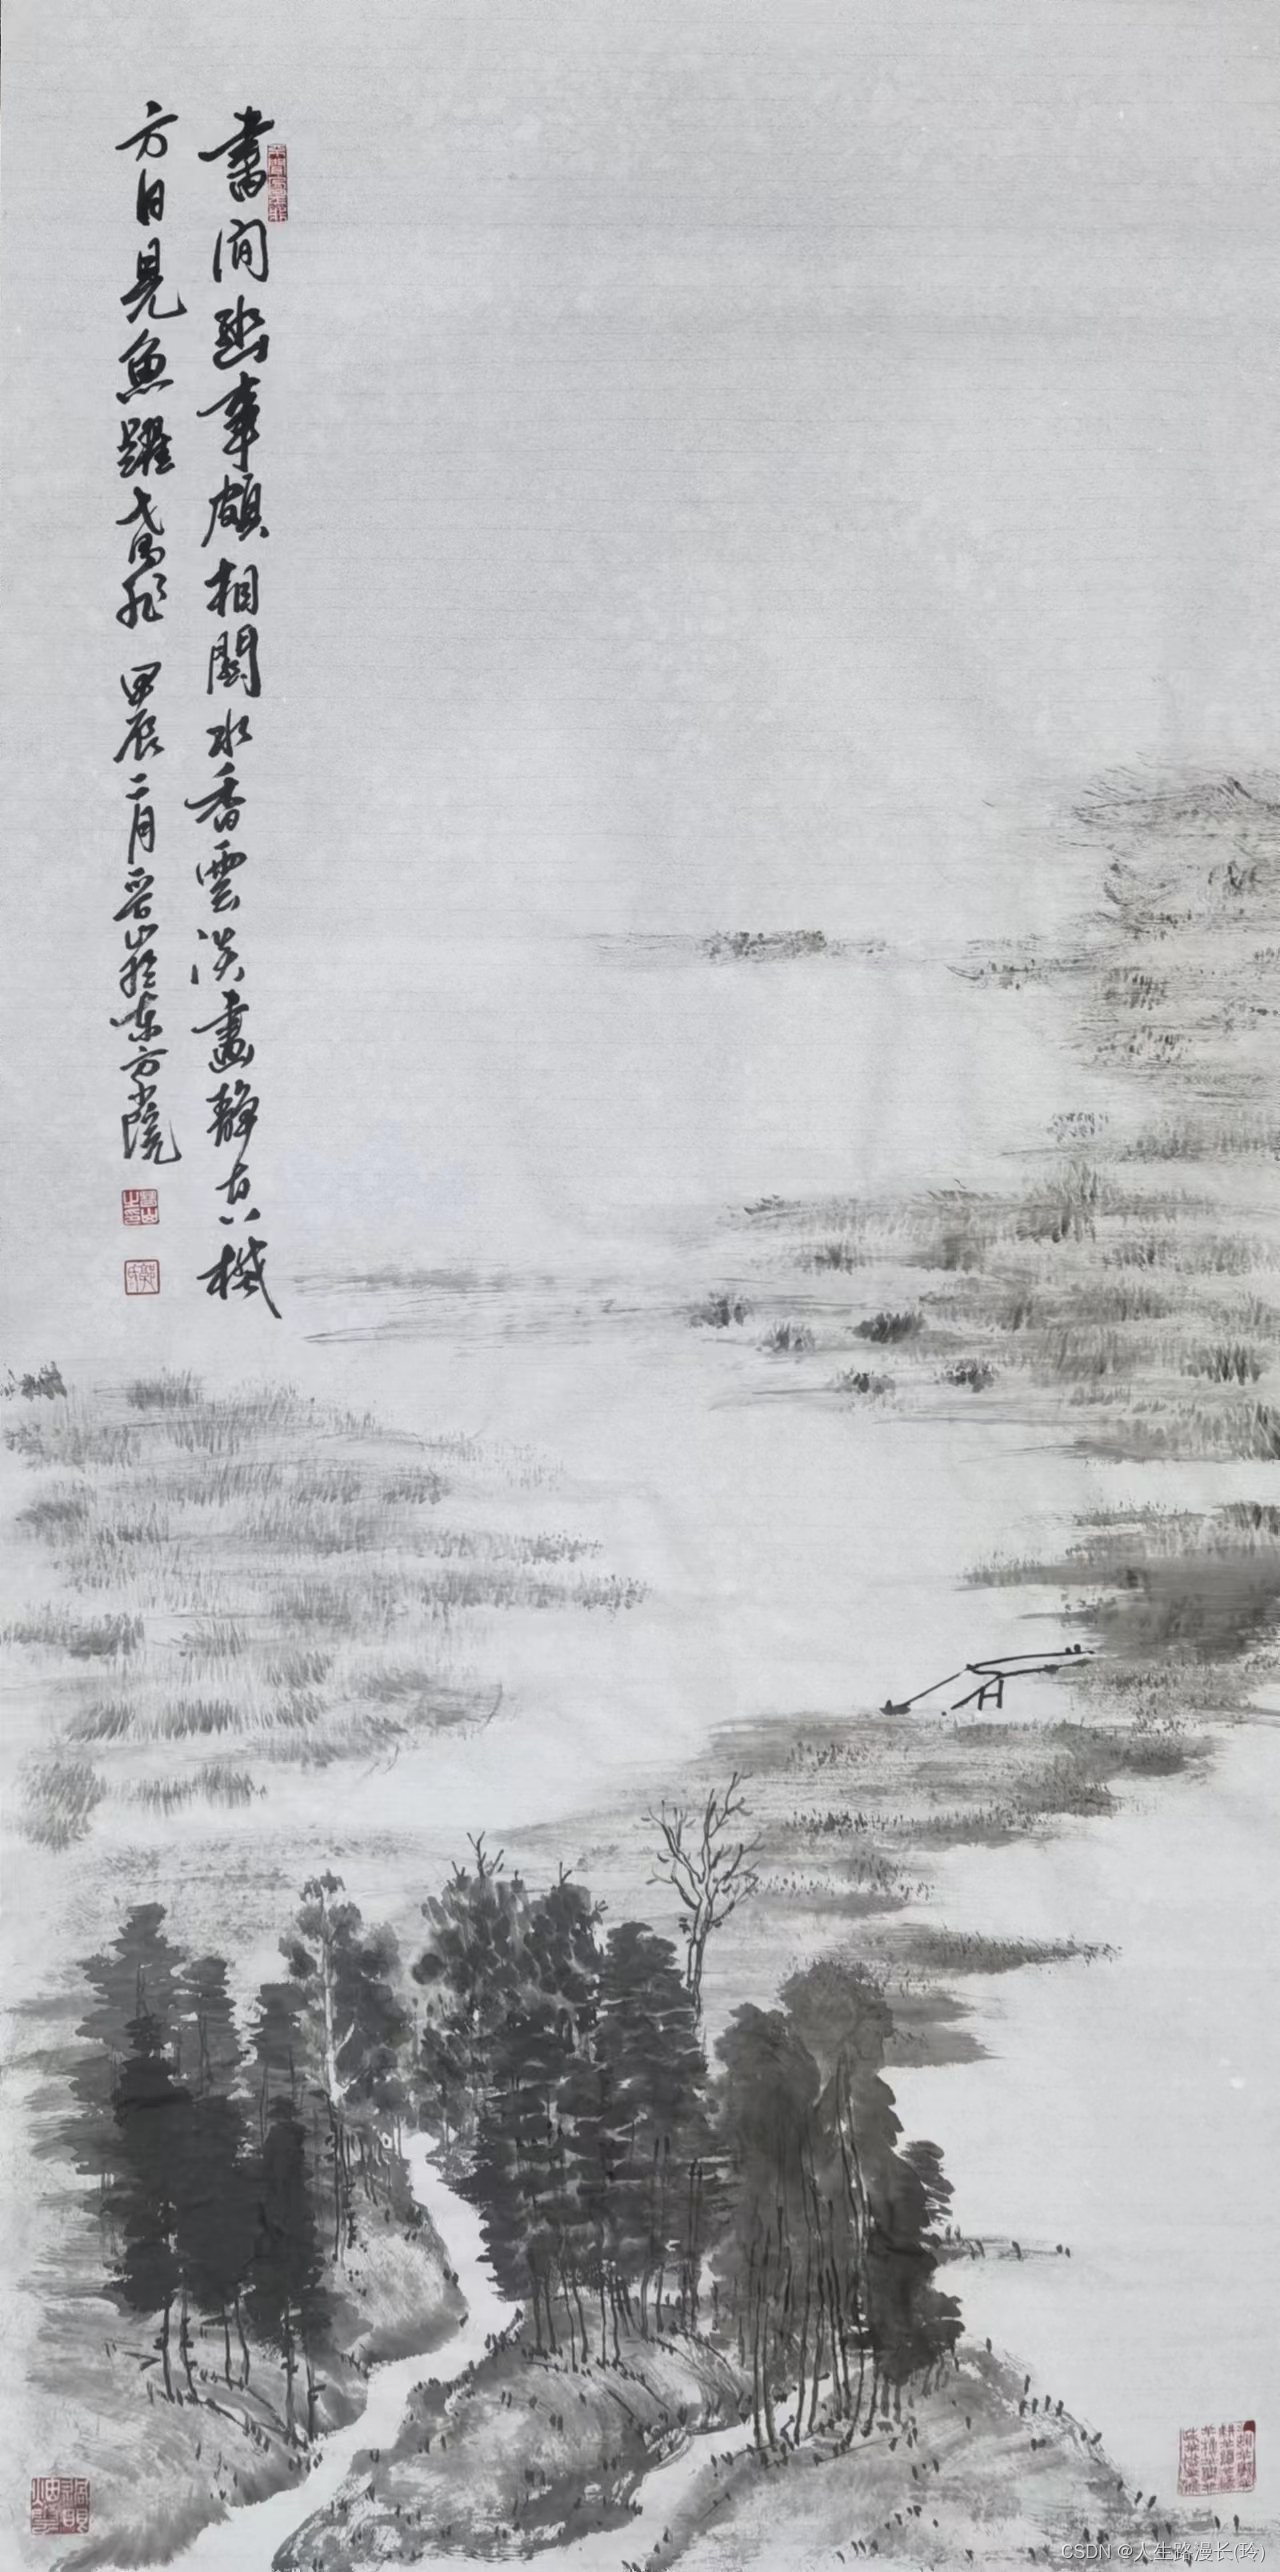 書间幽事頗相關水香雲淡畫靜真機
方日見魚躍鳶飛 甲辰二月晋山於东方小院
CSDN @人生路漫长(玲)